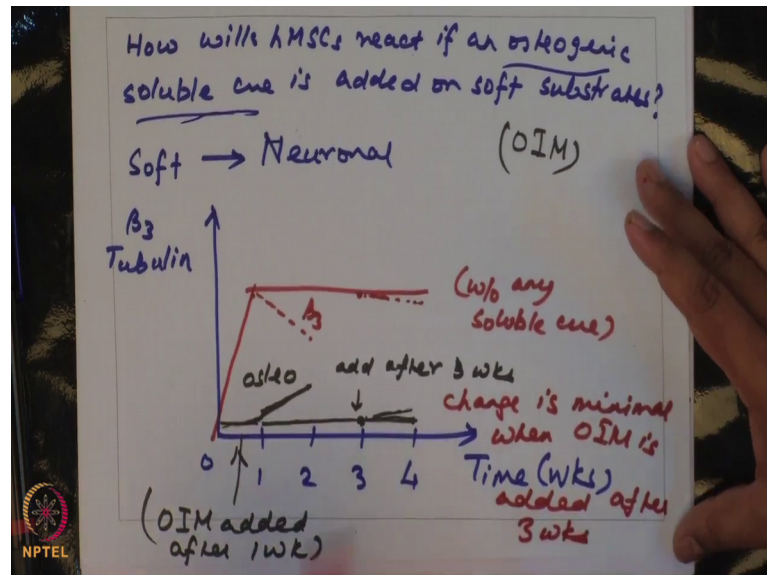 How wills hMSCs react if an osteogenic
soluble cue is added on soft substrates?
Soft → Neuronal
(OIM)
β3
Tubulin
(w/o any
soluble cue)
β3
osteo
add after 3 wks
change is minimal
when OIM is
added after
3 wks
0 1 2 3 4
Time (wks)
(OIM added
after 1wk)
NPTEL